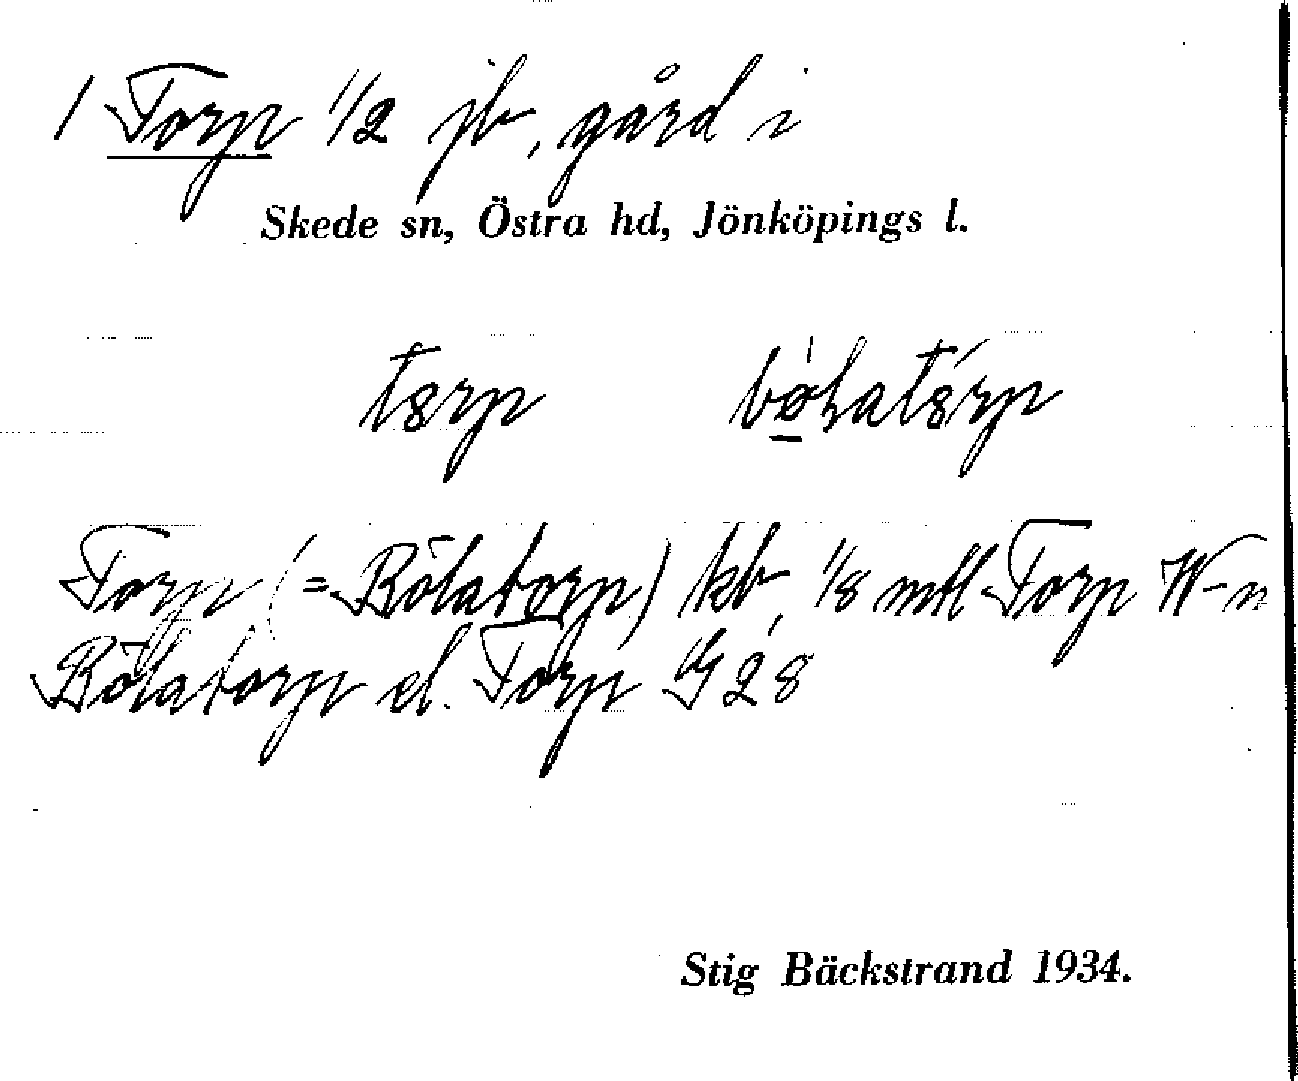 1 Torp 1/2 jb, gård i
Skede sn, Östra hd, Jönköpings l.
Torp (= Bölatorp) kb, 1/8 mtl Torp W-n
Bölatorp el. Torp G 28
Stig Bäckstrand 1934.